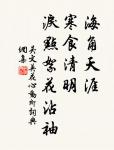 海角天涯
寒食清明
淚點絮花沾袖
吳文英花心動柳詞典
網集